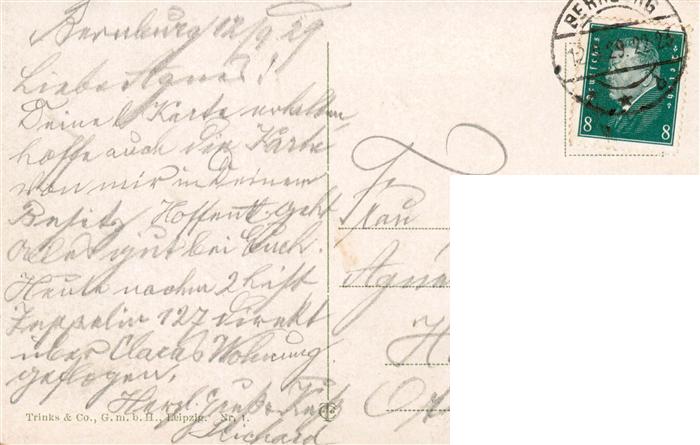 Bernburg 12/9 29
Liebe Agnes!
Deine l. Karte erhalten,
hoffe auch die Karte
von mir in Deinem
Besitz. Hoffentl. geht
alles gut bei Euch.
Heute nachm 2 h ist
Zeppelin 127 direkt
über Claras Wohnung
geflogen.
Herzl. Gruß & Kuß
Richard
Trinks & Co., G. m. b. H., Leipzig. Nr. 1.
BERNBURG
Deutsches Reich
8 8
Frau